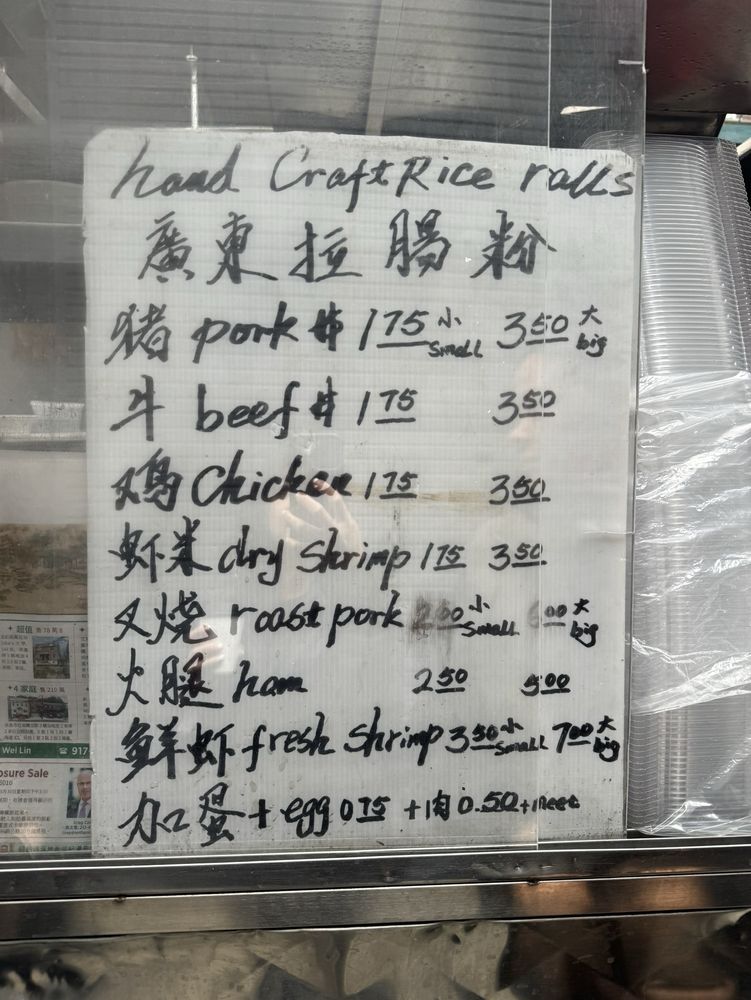 hand Craft Rice rolls
廣東拉腸粉
猪 pork $ 1 75 小 small 3 50 大 big
牛 beef $ 1 75 3 50
鸡 Chicken 1 75 3 50
虾米 dry shrimp 1 75 3 50
叉烧 roast pork 小 small 大 big
火腿 ham 2 50 5 00
鲜虾 fresh shrimp 3 50 小 small 7 00 大 big
加蛋 + egg 0 75 + 肉 0.50 + meet
超值
4 家庭 售 210 萬
Wei Lin ☎ 917
osure Sale